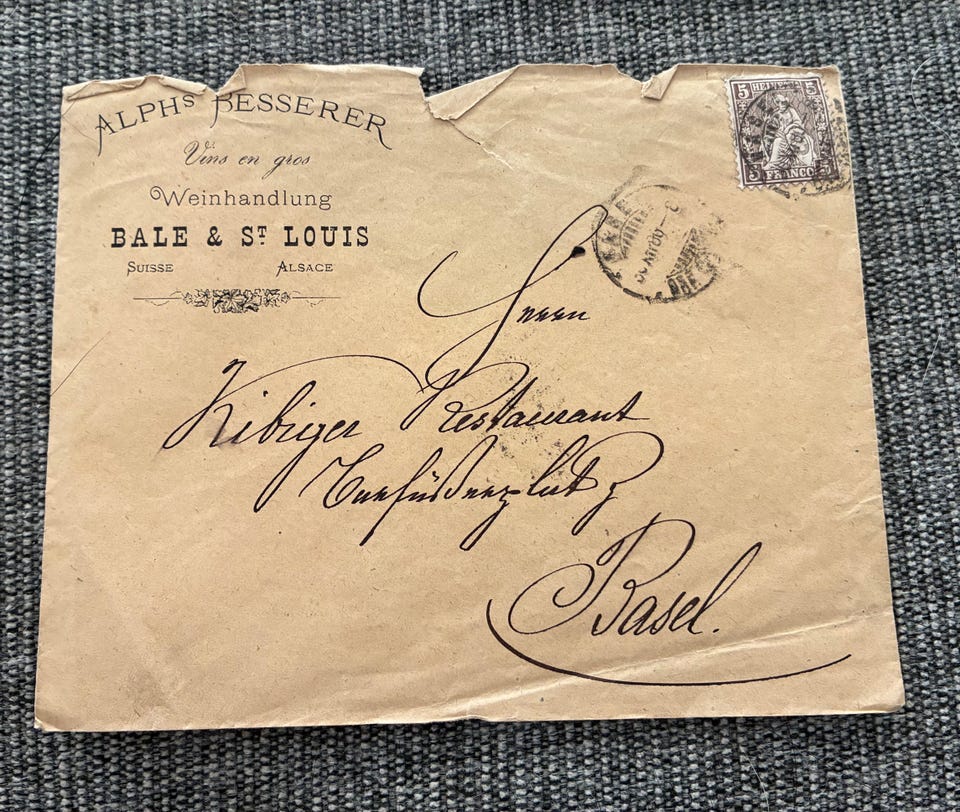 ALPHS BESSERER
Vins en gros
Weinhandlung
BALE & ST LOUIS
SUISSE ALSACE
5 HELVETIA 5
5 FRANCO 5
Herrn
Kibiger Restaurant
Barfüßerplatz
Basel.